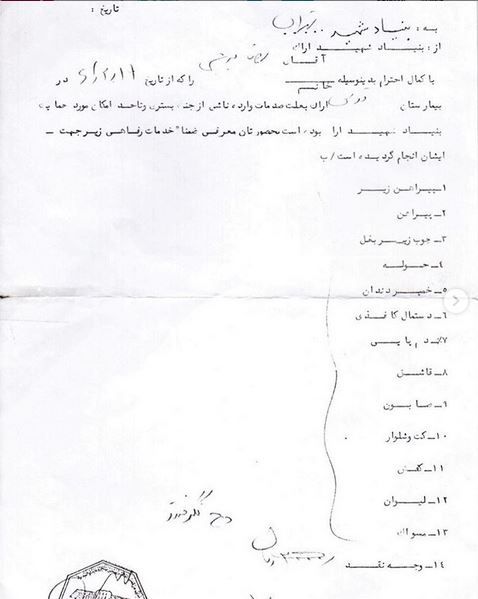 تاریخ :
به : بنیاد شهید .. تهران
از : بنیاد شهید اراك
آقای
با کمال احترام بدینوسیله خانم را که از تاریخ در
بیمارستان اراك بعلت صدمات وارده ناشی از جنگ بستری و تا حد امکان مورد حمایت
بنیاد شهید اراك بوده است بحضورتان معرفی ضمنا" خدمات رفاهی زیر جهت ــ
ایشان انجام گردیده است / ب
۱ــ پیراهن زیر
۲ــ پیراهن
۳ــ چوب زیر بغل
۴ــ حوله
۵ــ خمیر دندان
۶ــ دستمال کاغذی
۷ــ دم پایی
۸ــ قاشق
۹ــ صابون
۱۰ــ کت و شلوار
۱۱ــ کفش
۱۲ــ لیوان
۱۳ــ مسواك
۱۴ــ وجه نقد